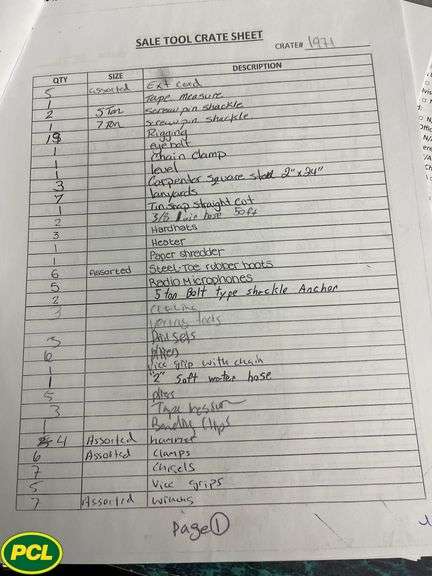 SALE TOOL CRATE SHEET
CRATE# 1971
QTY SIZE DESCRIPTION
5 assorted Ext cord
1 Tape measure
2 5 Ton screw pin shackle
1 7 Ton screw pin shackle
18 Rigging
1 eyebolt
1 Chain clamp
1 level
1 Carpentor square steel 2" x 24"
3 lanyards
7 Tin snap straight cut
1 3/8 air hose 50ft
2 Hardhats
3 Heater
1 Paper shredder
1 Steel-Toe rubber boots
6 Assorted Radio Microphones
5 5 ton Bolt type shackle Anchor
2
3
3
6 pliers
1 Vice grip with chain
1 "2" soft water hose
5 pliers
3 Tape
1
4 Assorted hammer
6 Assorted Clamps
7 Chisels
5 Vice grips
7 Assorted
Page 1
PCL